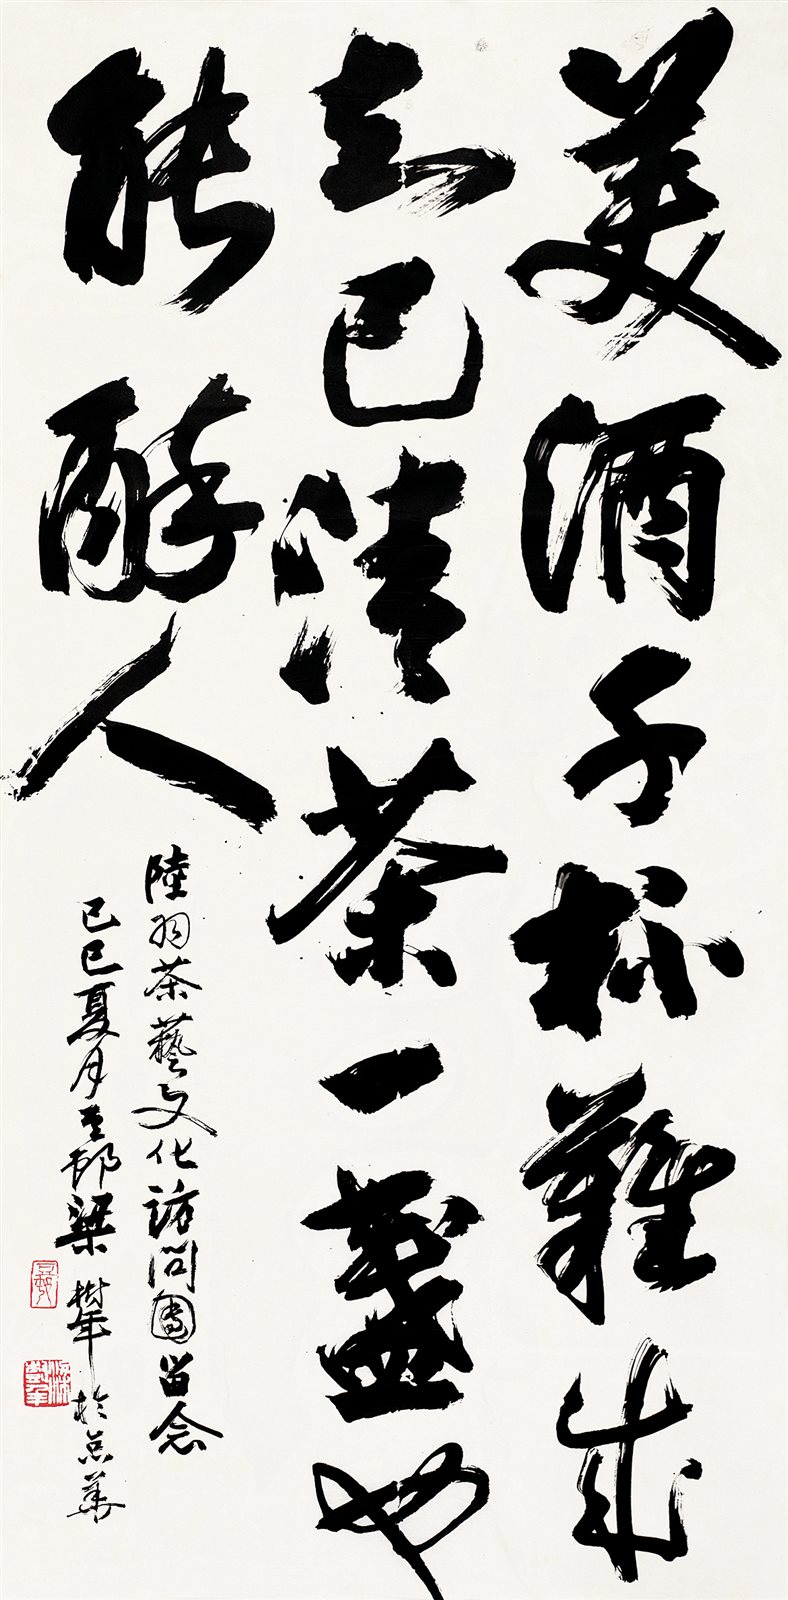 美酒千杯難成
知己清茶一盞也
能醉人
陸羽茶藝文化訪問團留念
己巳夏月豆邨梁樹年於京華